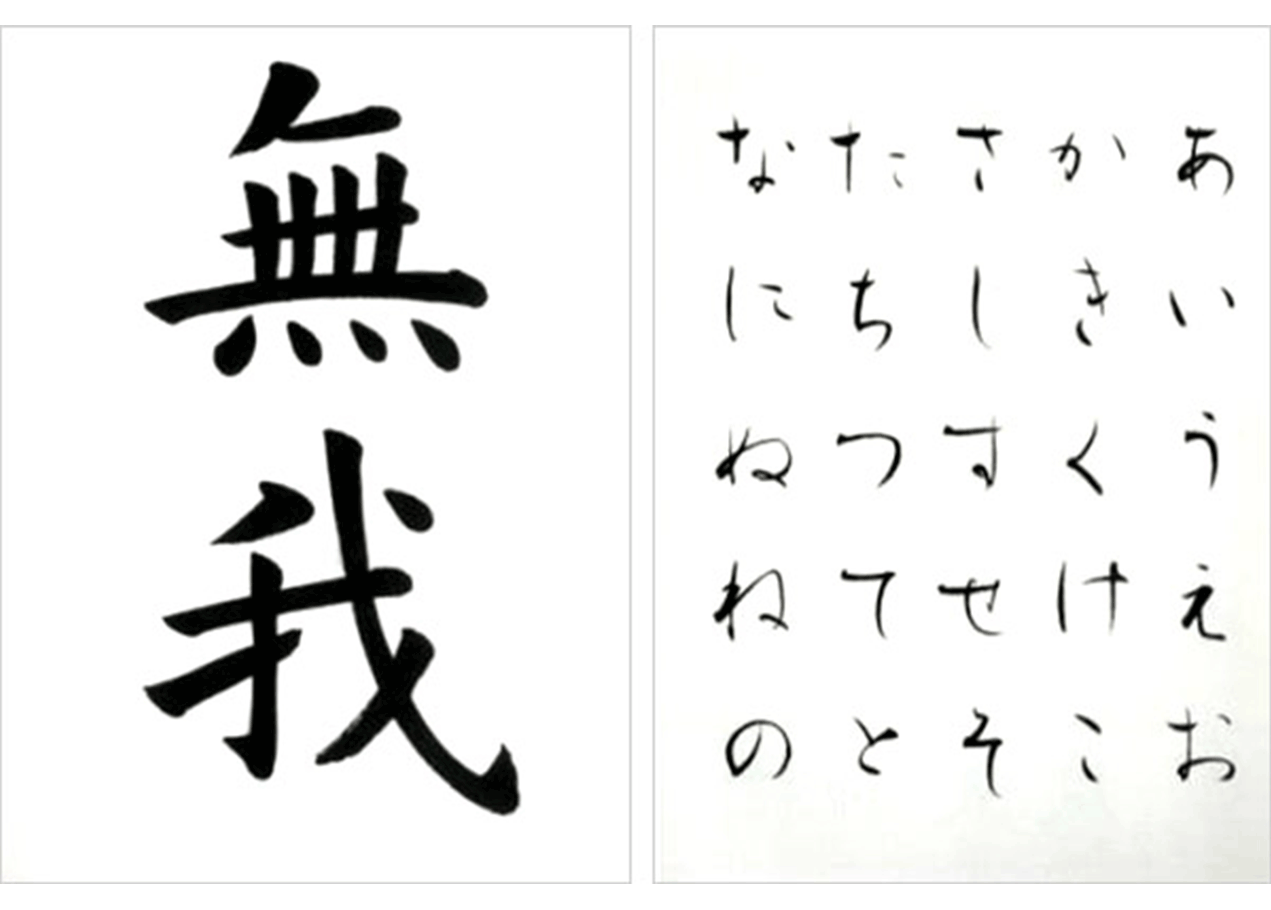 無我
あいうえお
かきくけこ
さしすせそ
たちつてと
なにぬねの